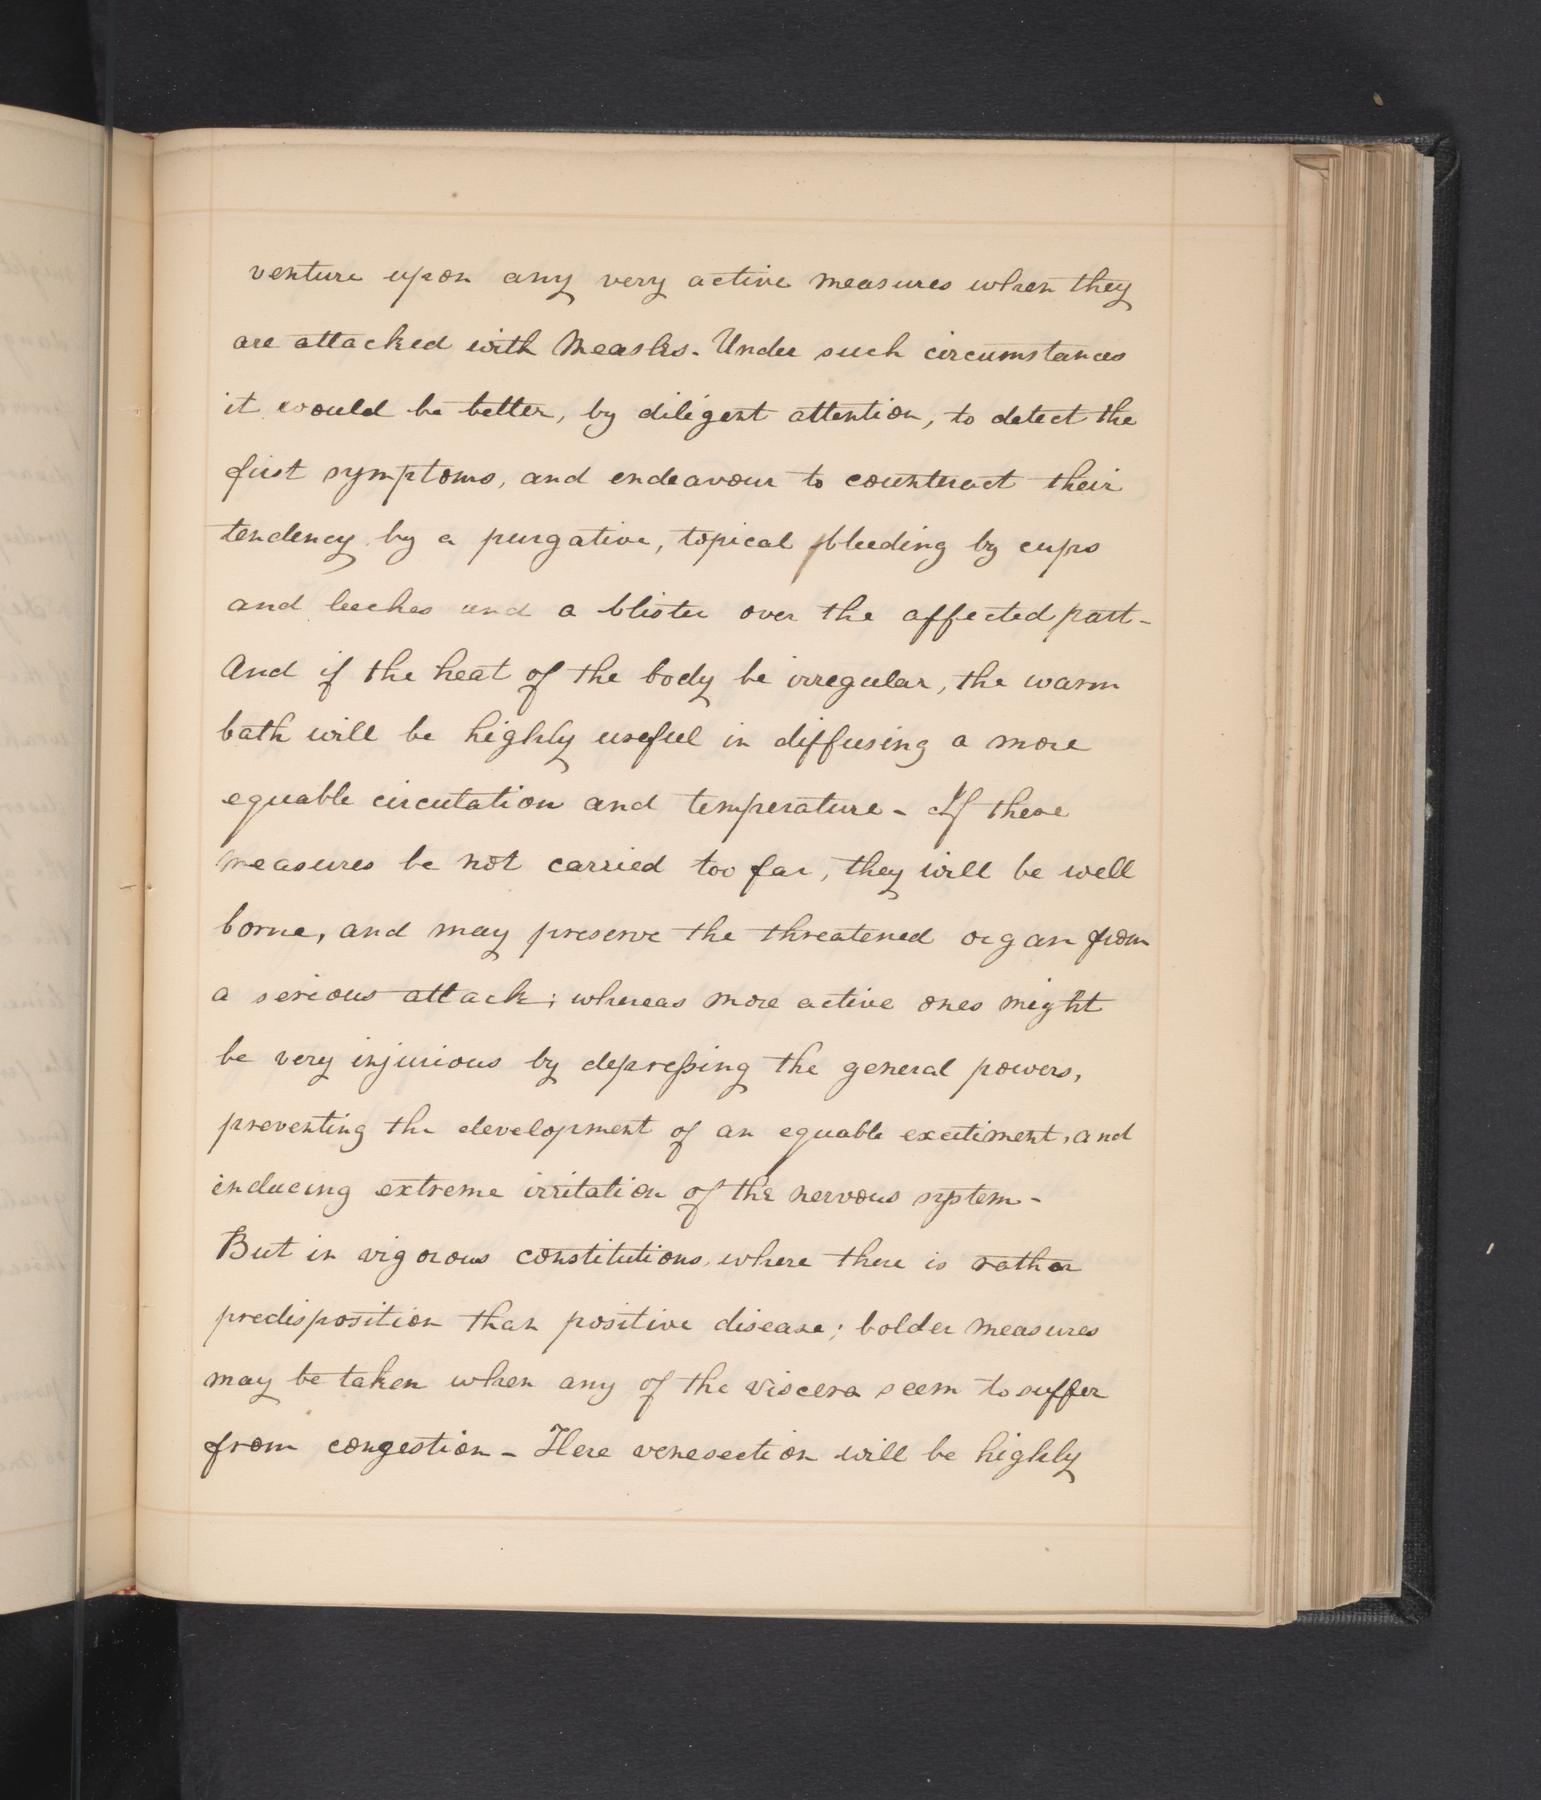 venture upon any very active measures when they
are attacked with Measles. Under such circumstances
it would be better, by diligent attention, to detect the
first symptoms, and endeavour to counteract their
tendency by a purgative, topical bleeding by cups
and leeches and a blister over the affected part-
And if the heat of the body be irregular, the warm
bath will be highly useful in diffusing a more
equable circulation and temperature - If these
measures be not carried too far, they will be well
borne, and may preserve the threatened organ from
a serious attack; whereas more active ones might
be very injurious by depressing the general powers,
preventing the development of an equable excitiment, and
inducing extreme irritation of the nervous system -
But in vigorous constitutions, where there is rather
predisposition than positive disease; bolder measures
may be taken when any of the viscera seem to suffer
from congestion - Here venesection will be highly